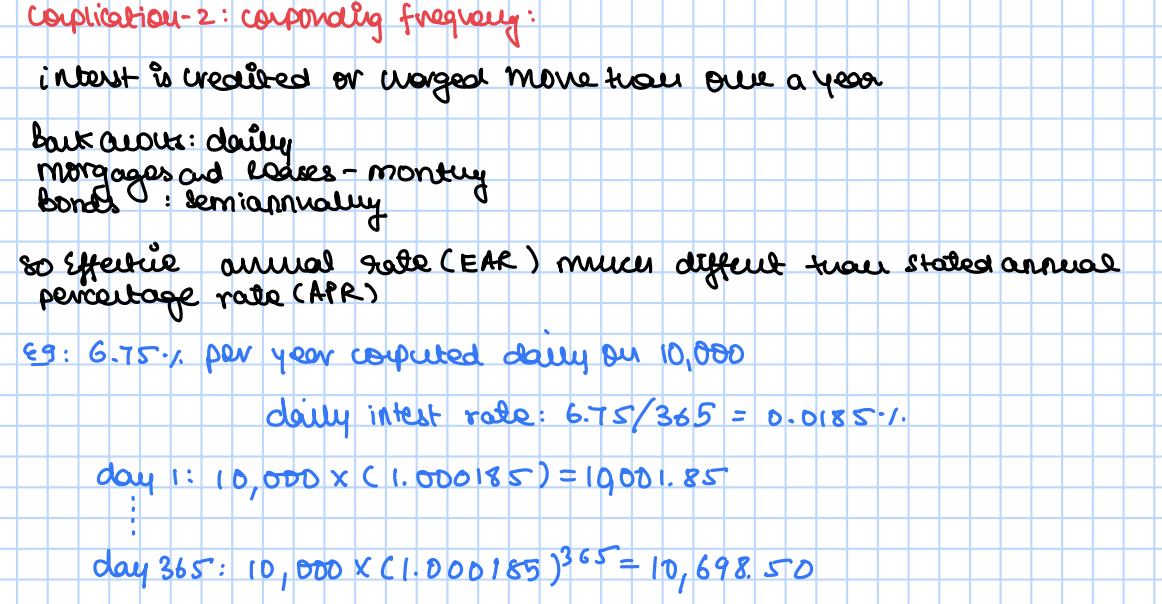 Complication-2: componding frequency:
interst is credited or charged more than one a year
Bank acouts: daily
morgages and leases - montly
Bonds : semiannually
so Effective annual rate (EAR) much diffent than stated annual
percentage rate (APR)
Eg: 6.75% per year computed daily on 10,000
daily intest rate: 6.75/365 = 0.0185%
day 1: 10,000 x (1.000185) = 10,001.85
day 365: 10,000 x (1.000185)^365 = 10,698.50